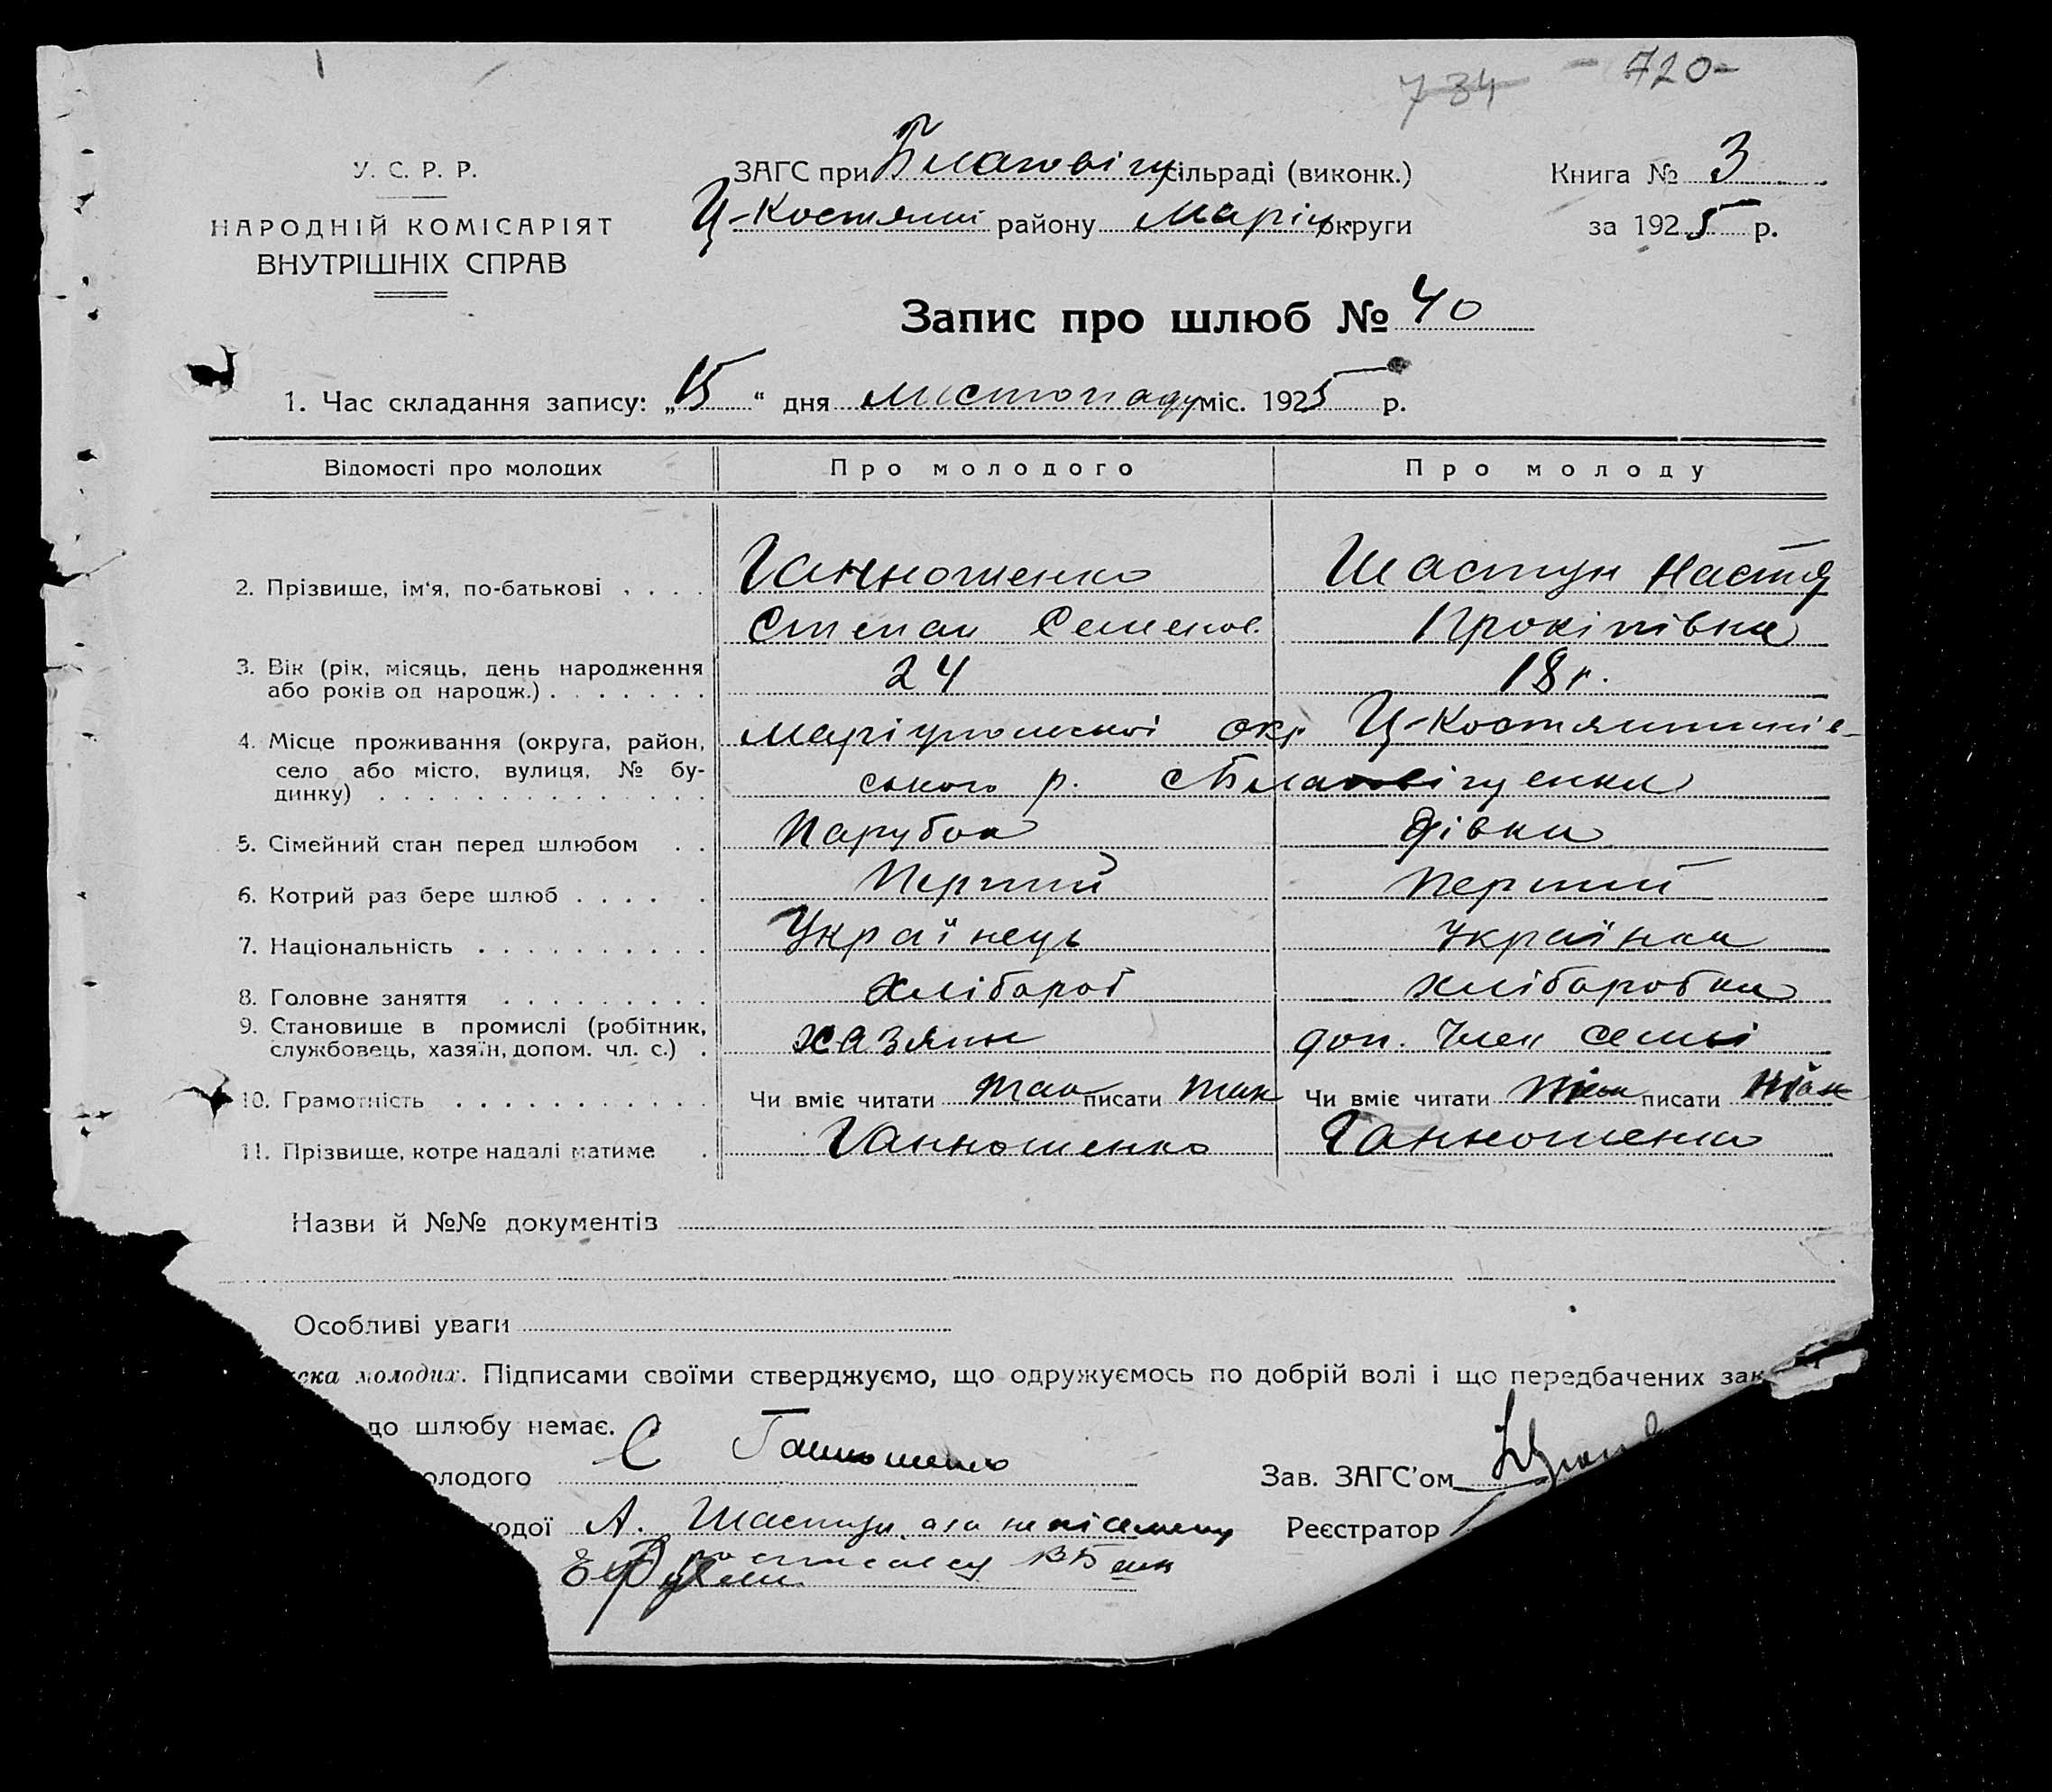 734 - 720-
У. С. Р. Р.
НАРОДНІЙ КОМІСАРІЯТ
ВНУТРІШНІХ СПРАВ
ЗАГС при Благовіщ сільраді (виконк.)
Ц-Костянт району Маріуп округи
Книга № 3
за 1925 р.
Запис про шлюб № 40
1. Час складання запису: „15“ дня листопаду міс. 1925 р.
Відомості про молодих Про молодого Про молоду
2. Прізвище, ім‘я, по-батькові . . . . Ганношенко Шастун Настя
Степан Семенов. Прокіпівна
3. Вік (рік, місяць, день народження 24 18 г.
або років од народж.) . . . . . . .
4. Місце проживання (округа, район, Маріупольської окр. Ц-Костянтинів-
село або місто, вулиця, № бу- ського р. с Благовіщенка
динку) . . . . . . . . . . . . . .
5. Сімейний стан перед шлюбом . . Парубок Дівка
6. Котрий раз бере шлюб . . . . . Перший Перший
7. Національність . . . . . . . . . . Українець Українка
8. Головне заняття . . . . . . . . . Хлібороб Хліборобка
9. Становище в промислі (робітник, хазяин доп. член семьї
службовець, хазяїн, допом. чл. с.) .
10. Грамотність . . . . . . . . . . . Чи вміє читати так писати так Чи вміє читати писати
11. Прізвище, котре надалі матиме . Ганношенко Ганношенко
Назви й №№ документів
Особливі уваги
ска молодих. Підписами своїми стверджуємо, що одружуємось по добрій волі і що передбачених зак
до шлюбу немає.
олодого С Ганношенко Зав. ЗАГС’ом
одої А. Шастун, Реєстратор